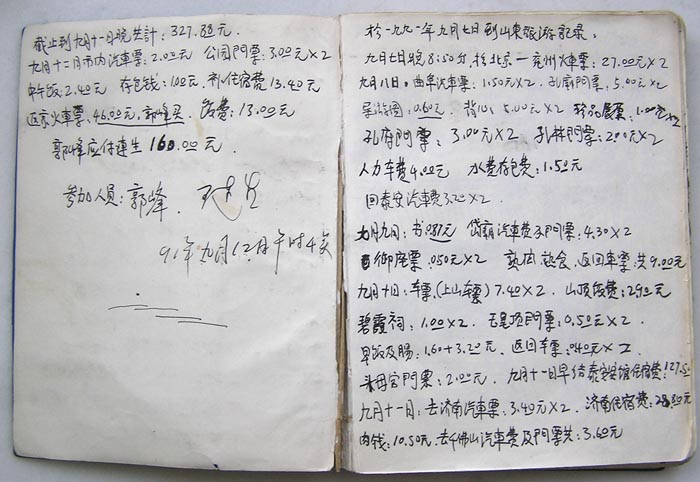 截止到九月十一日晚共计：327.38元
九月十二日市内汽車票：2.00元 公园门票：3.00元×2
中午饭：2.40元 存包钱：1.00元 补住宿费13.40元
返京火車票：46.00元，郭峰买 饭费：13.00元
郭峰应付建生160.00元
参加人员：郭峰、
91年九月12日午时4点
於一九九一年九月七日到山東旅游記录：
九月七日晚8:50分，於北京—兖州火車票：27.00元×2
九月八日：曲阜汽車票：1.50元×2．孔廟門票：5.00元×2
导游图：0.60元．背心5.00元×2 珍品展票：1.00元×2
孔府門票：3.00元×2 孔林門票：2.00元×2
人力车费4.00元 水费存包费：1.50元
回泰安汽車費3.20×2
九月九日：书 岱廟汽車费及門票：4.30×2
御座票：0.50元×2 返回车票：共9.00元
九月十日：车票(上山车票)7.40×2．山顶饭费：2.90元
碧霞祠：1.00×2．玉皇頂門票：0.50元×2
早饭及腸：1.60+3.20元．返回车票：0.40元×2
斗母宫門票：2.00元．九月十一日早结泰安宾馆住宿费：127.50
九月十一日：去济南汽車票：3.40元×2．济南住宿费：28.80元
肉钱：10.50元．去千佛山汽車费及門票共：3.60元